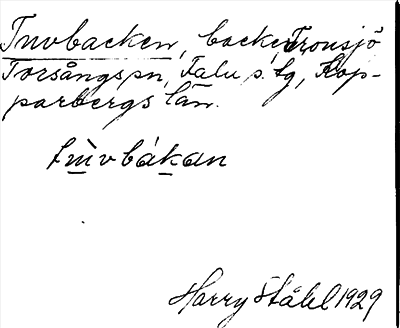 Tuvbacken, backe, Tronsjö
Torsångs pn, Falu s. lg, Kop-
parbergs län.
tùvbákan
Harry Ståhl 1929